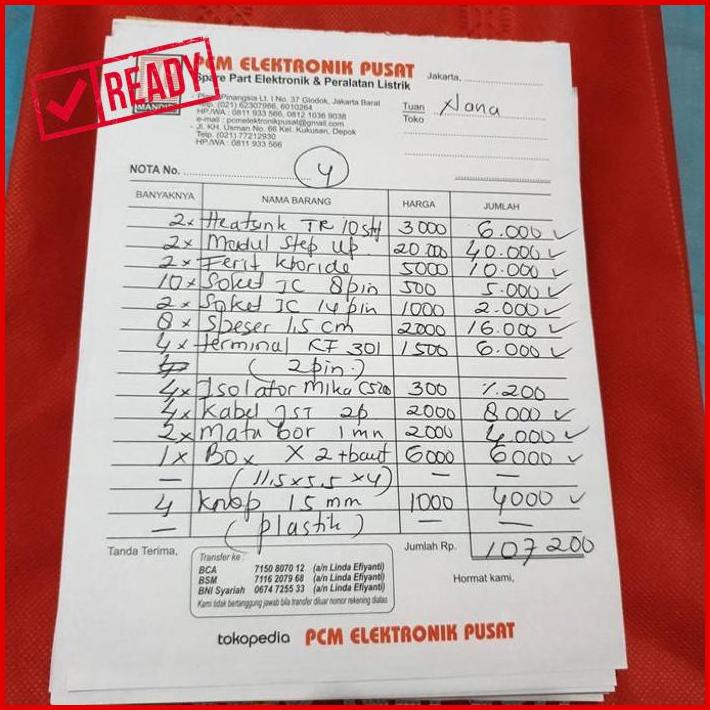 READY
MANDIRI
PCM ELEKTRONIK PUSAT
Spare Part Elektronik & Peralatan Listrik
Plaza Pinangsia Lt. I No. 37 Glodok, Jakarta Barat
Telp. (021) 62307966, 6010264
HP./WA : 0811 933 566, 0812 1036 9038
e-mail : pcmelektronikpusat@gmail.com
- JL. KH. Usman No. 66 Kel. Kukusan, Depok
Telp. (021) 77212930
HP./WA : 0811 933 566
Jakarta,
Tuan Nana
Toko
NOTA No. 4
BANYAKNYA NAMA BARANG HARGA JUMLAH
2x Heatsink TR 10 3000 6.000
2x Modul Step up 20.000 40.000
2x Ferit kboride 5000 10.000
10x Soket IC 8pin 500 5.000
2x Soket IC 14 pin 1000 2.000
8x Speser 1,5 cm 2000 16.000
4x terminal KF 301 1500 6.000
(2pin.)
4x Isolator mika 300 1.200
4x Kabel JST 2p 2000 8.000
2x mata bor 1 mm 2000 4.000
1x Box X2 + baut 6000 6000
— (11,5x5,5x4) — —
4 knop 15 mm 1000 4000
— (plastik) — —
Tanda Terima,
Transfer ke :
BCA 7150 8070 12 (a/n Linda Efiyanti)
BSM 7116 2079 68 (a/n Linda Efiyanti)
BNI Syariah 0674 7255 33 (a/n Linda Efiyanti)
Kami tidak bertanggung jawab bila transfer diluar nomor rekening diatas
Jumlah Rp. 107 200
Hormat kami,
tokopedia PCM ELEKTRONIK PUSAT